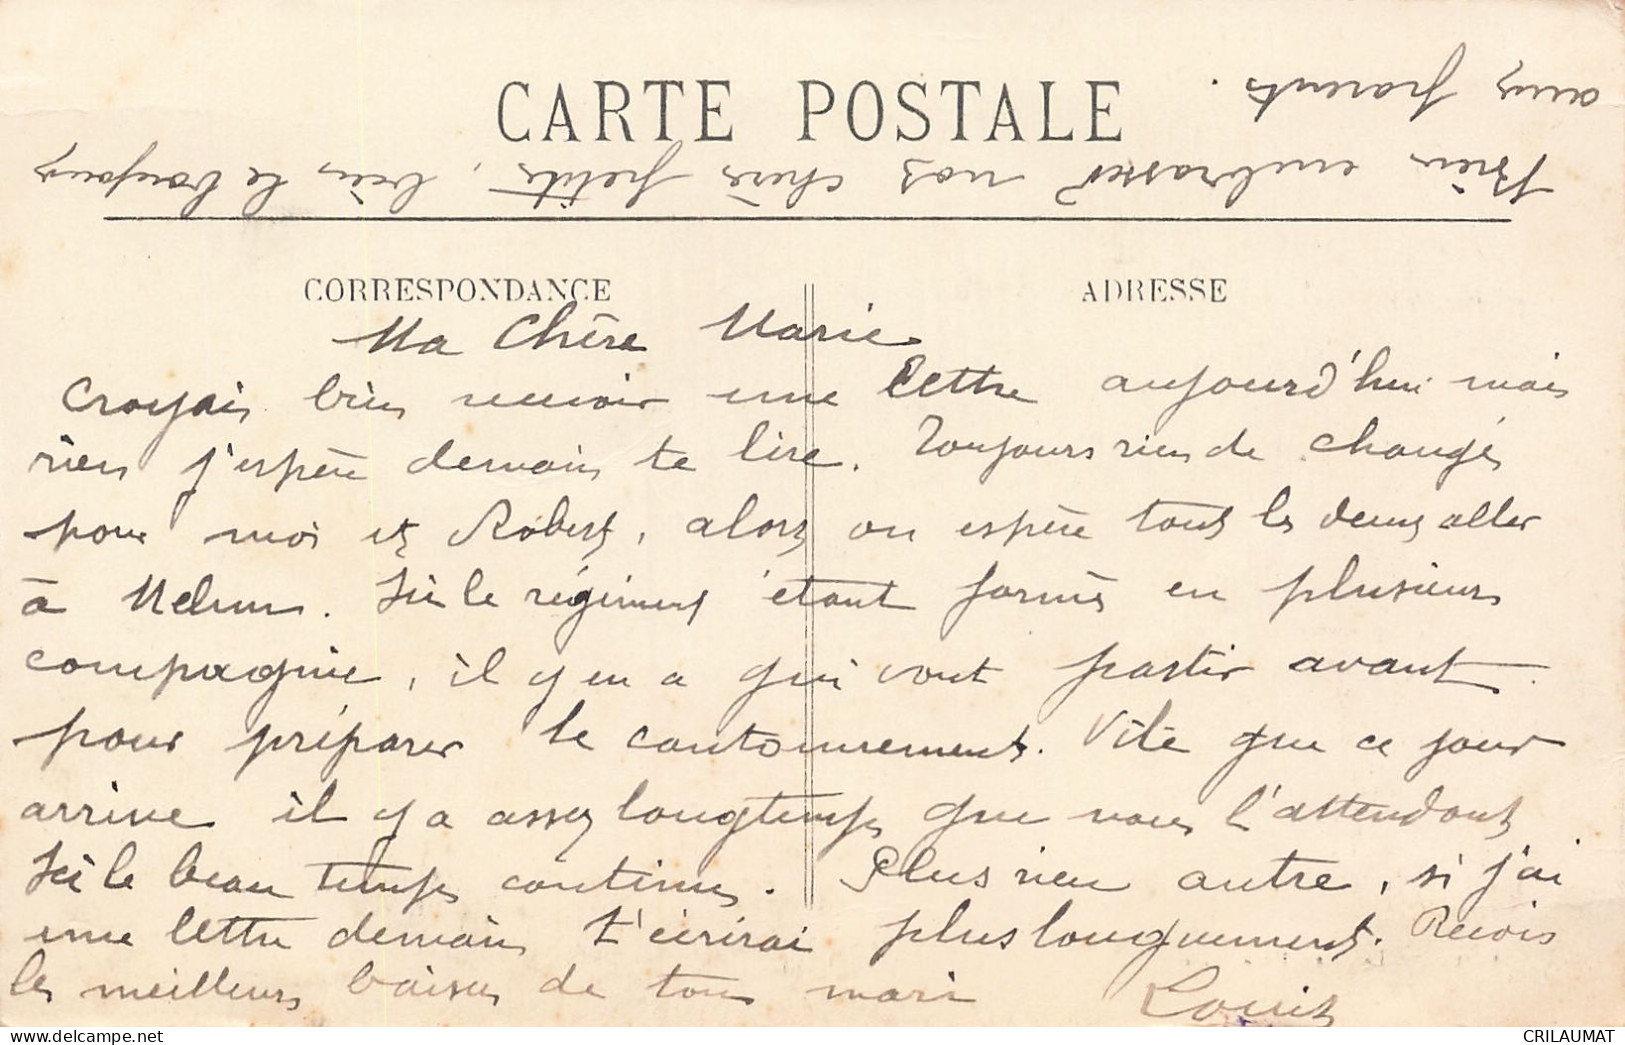 CARTE POSTALE
CORRESPONDANCE
ADRESSE
Ma Chère Marie
Croyais bien recevoir une lettre aujourd'hui mais
rien j'espère demain te lire. Toujours rien de changé
pour moi et Robert, alors on espère tous les deux aller
à Melun. Ici le régiment étant formé en plusieurs
compagnie, il y en a qui vont partir avant
pour préparer le cantonnement. Vite que ce jour
arrive il y a assez longtemps que nous l'attendons
Ici le beau temps continue. Plus rien autre, si j'ai
une lettre demain t'écrirai plus longuement. Reçois
les meilleurs baisers de ton mari Louis
Bien embrasser nos chers petits, bien le bonjour
aux parents.
CRILAUMAT